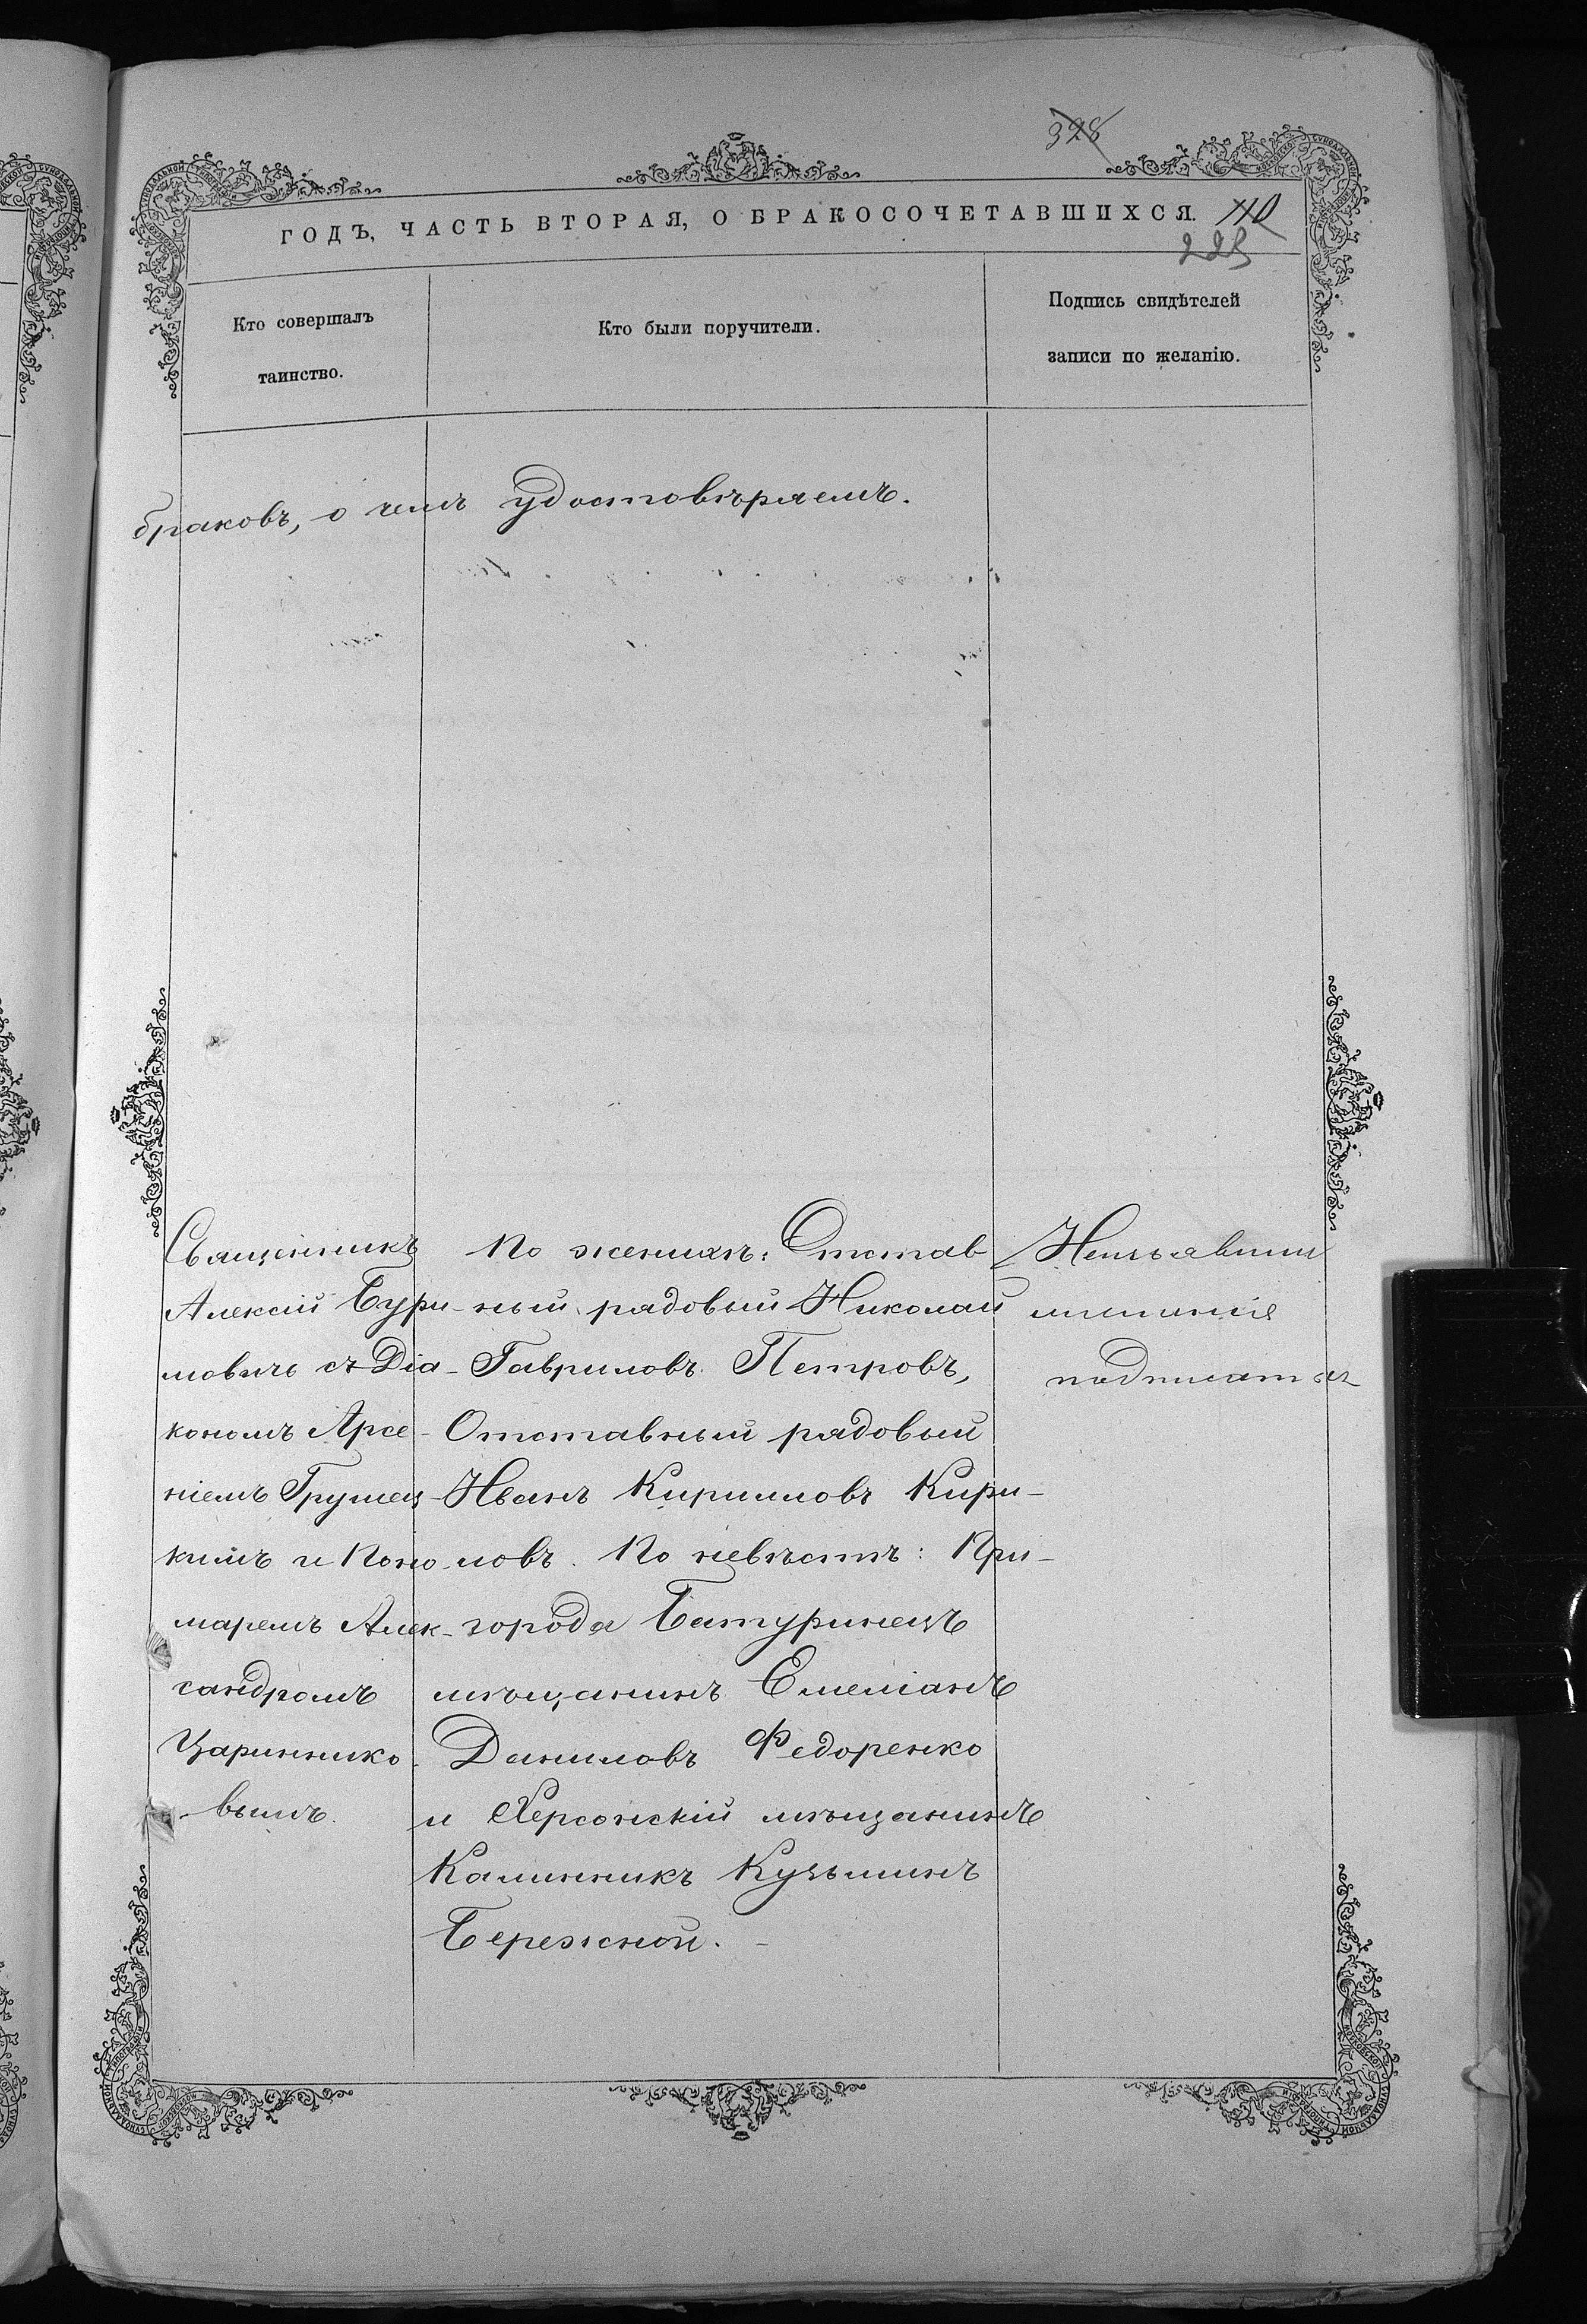 328
ГОДЪ, ЧАСТЬ ВТОРАЯ, О БРАКОСОЧЕТАВШИХСЯ. 110
225
Кто совершалъ
таинство.
Кто были поручители.
Подпись свидѣтелей
записи по желанію.
браковъ, о чемъ удостовѣряемъ.
Священникъ
Алексій Бури-
мовичъ съ Діа-
кономъ Арсе-
ніемъ Грумец-
кимъ и Поно-
маремъ Алек-
сандромъ
Царинннико-
вымъ.
По женихѣ: Отстав-
ный рядовый Николай
Гавриловъ Петровъ,
Отставный рядовый
Иванъ Кирилловъ Кири-
ловъ. По невѣстѣ: При-
города Батуринецъ
мѣщанинъ Емеліанъ
Даниловъ Федоренко
и Херсонскій мѣщанинъ
Калинникъ Кузьминъ
Бережной. -
Неизъявили
подписатся